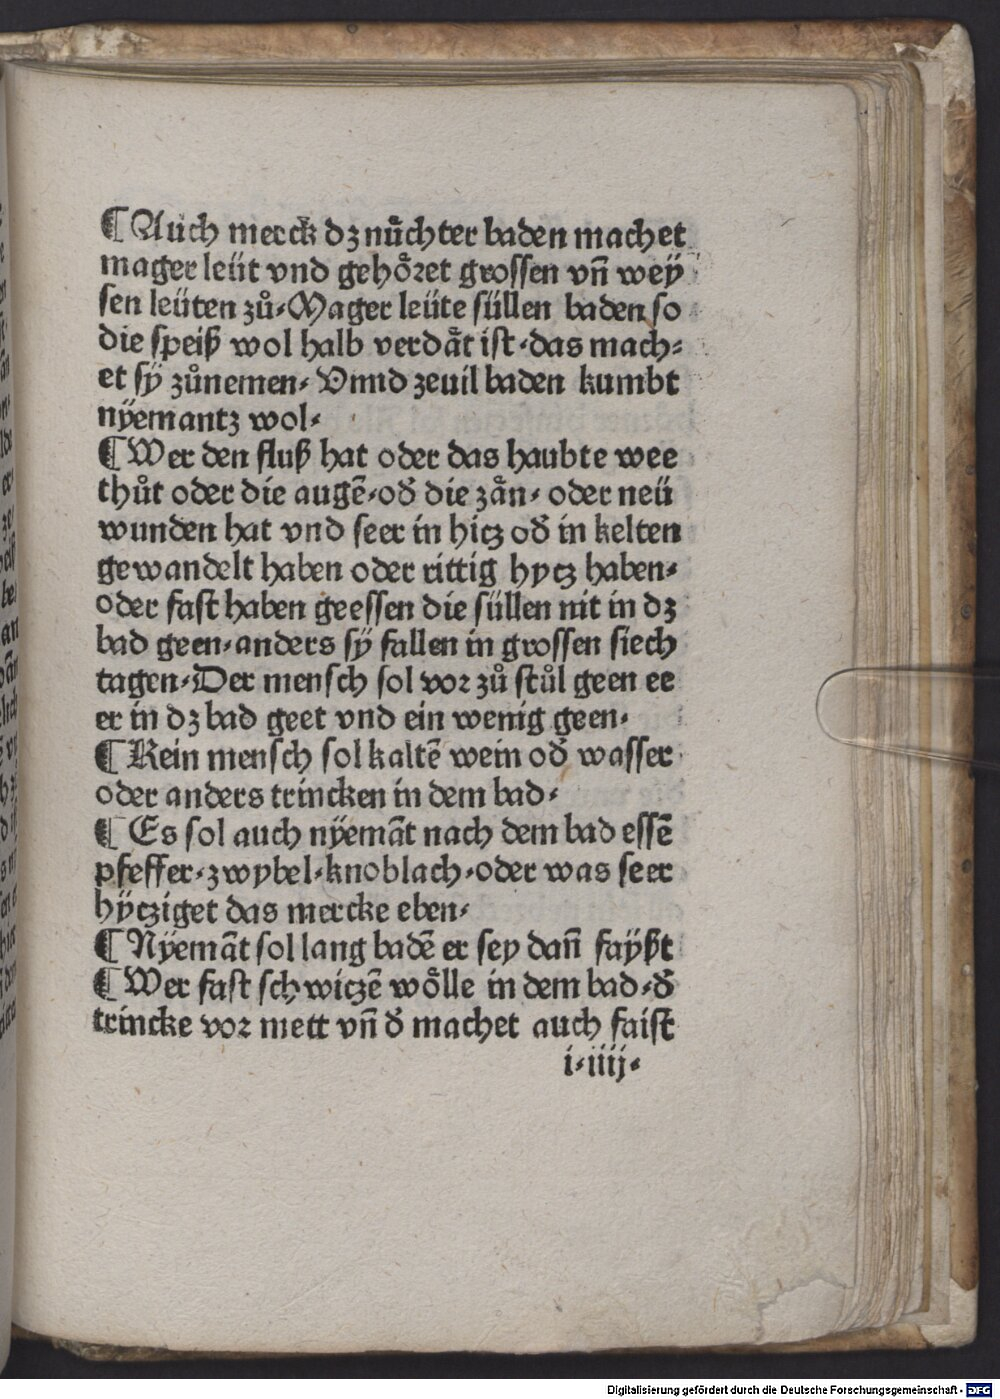 ¶ Auch merck dz nu̇chter baden machet
mager leüt vnd gehoͤret grossen vñ wey
sen leüten zů. Mager leüte süllen baden so
die speiß wol halb verdaͤt ist. das mach⸗
et sÿ zůnemen. Vnnd zeuil baden kumbt
nÿemantz wol.
¶ Wer den fluß hat oder das haubte wee
thůt oder die augē. od̕ die zaͤn. oder neü
wunden hat vnd seer in hicz od̕ in kelten
gewandelt haben oder rittig hycz haben.
oder fast haben geessen die süllen nit in dz
bad geen. anders sÿ fallen in grossen siech
tagen. Der mensch sol vor zů stůl geen ee
er in dz bad geet vnd ein wenig geen.
¶ Kein mensch sol kaltē wein od̕ wasser
oder anders trincken in dem bad.
¶ Es sol auch nÿemāt nach dem bad essē
pfeffer. zwybel. knoblach. oder was seer
hÿcziget das mercke eben.
¶ Nÿemāt sol lang badē er sey dañ faÿßt
¶ Wer fast schwiczē woͤlle in dem bad. d̕
trincke vor mett vñ d̕ machet auch faist
i. iiij.
Digitalisierung gefördert durch die Deutsche Forschungsgemeinschaft - DFG